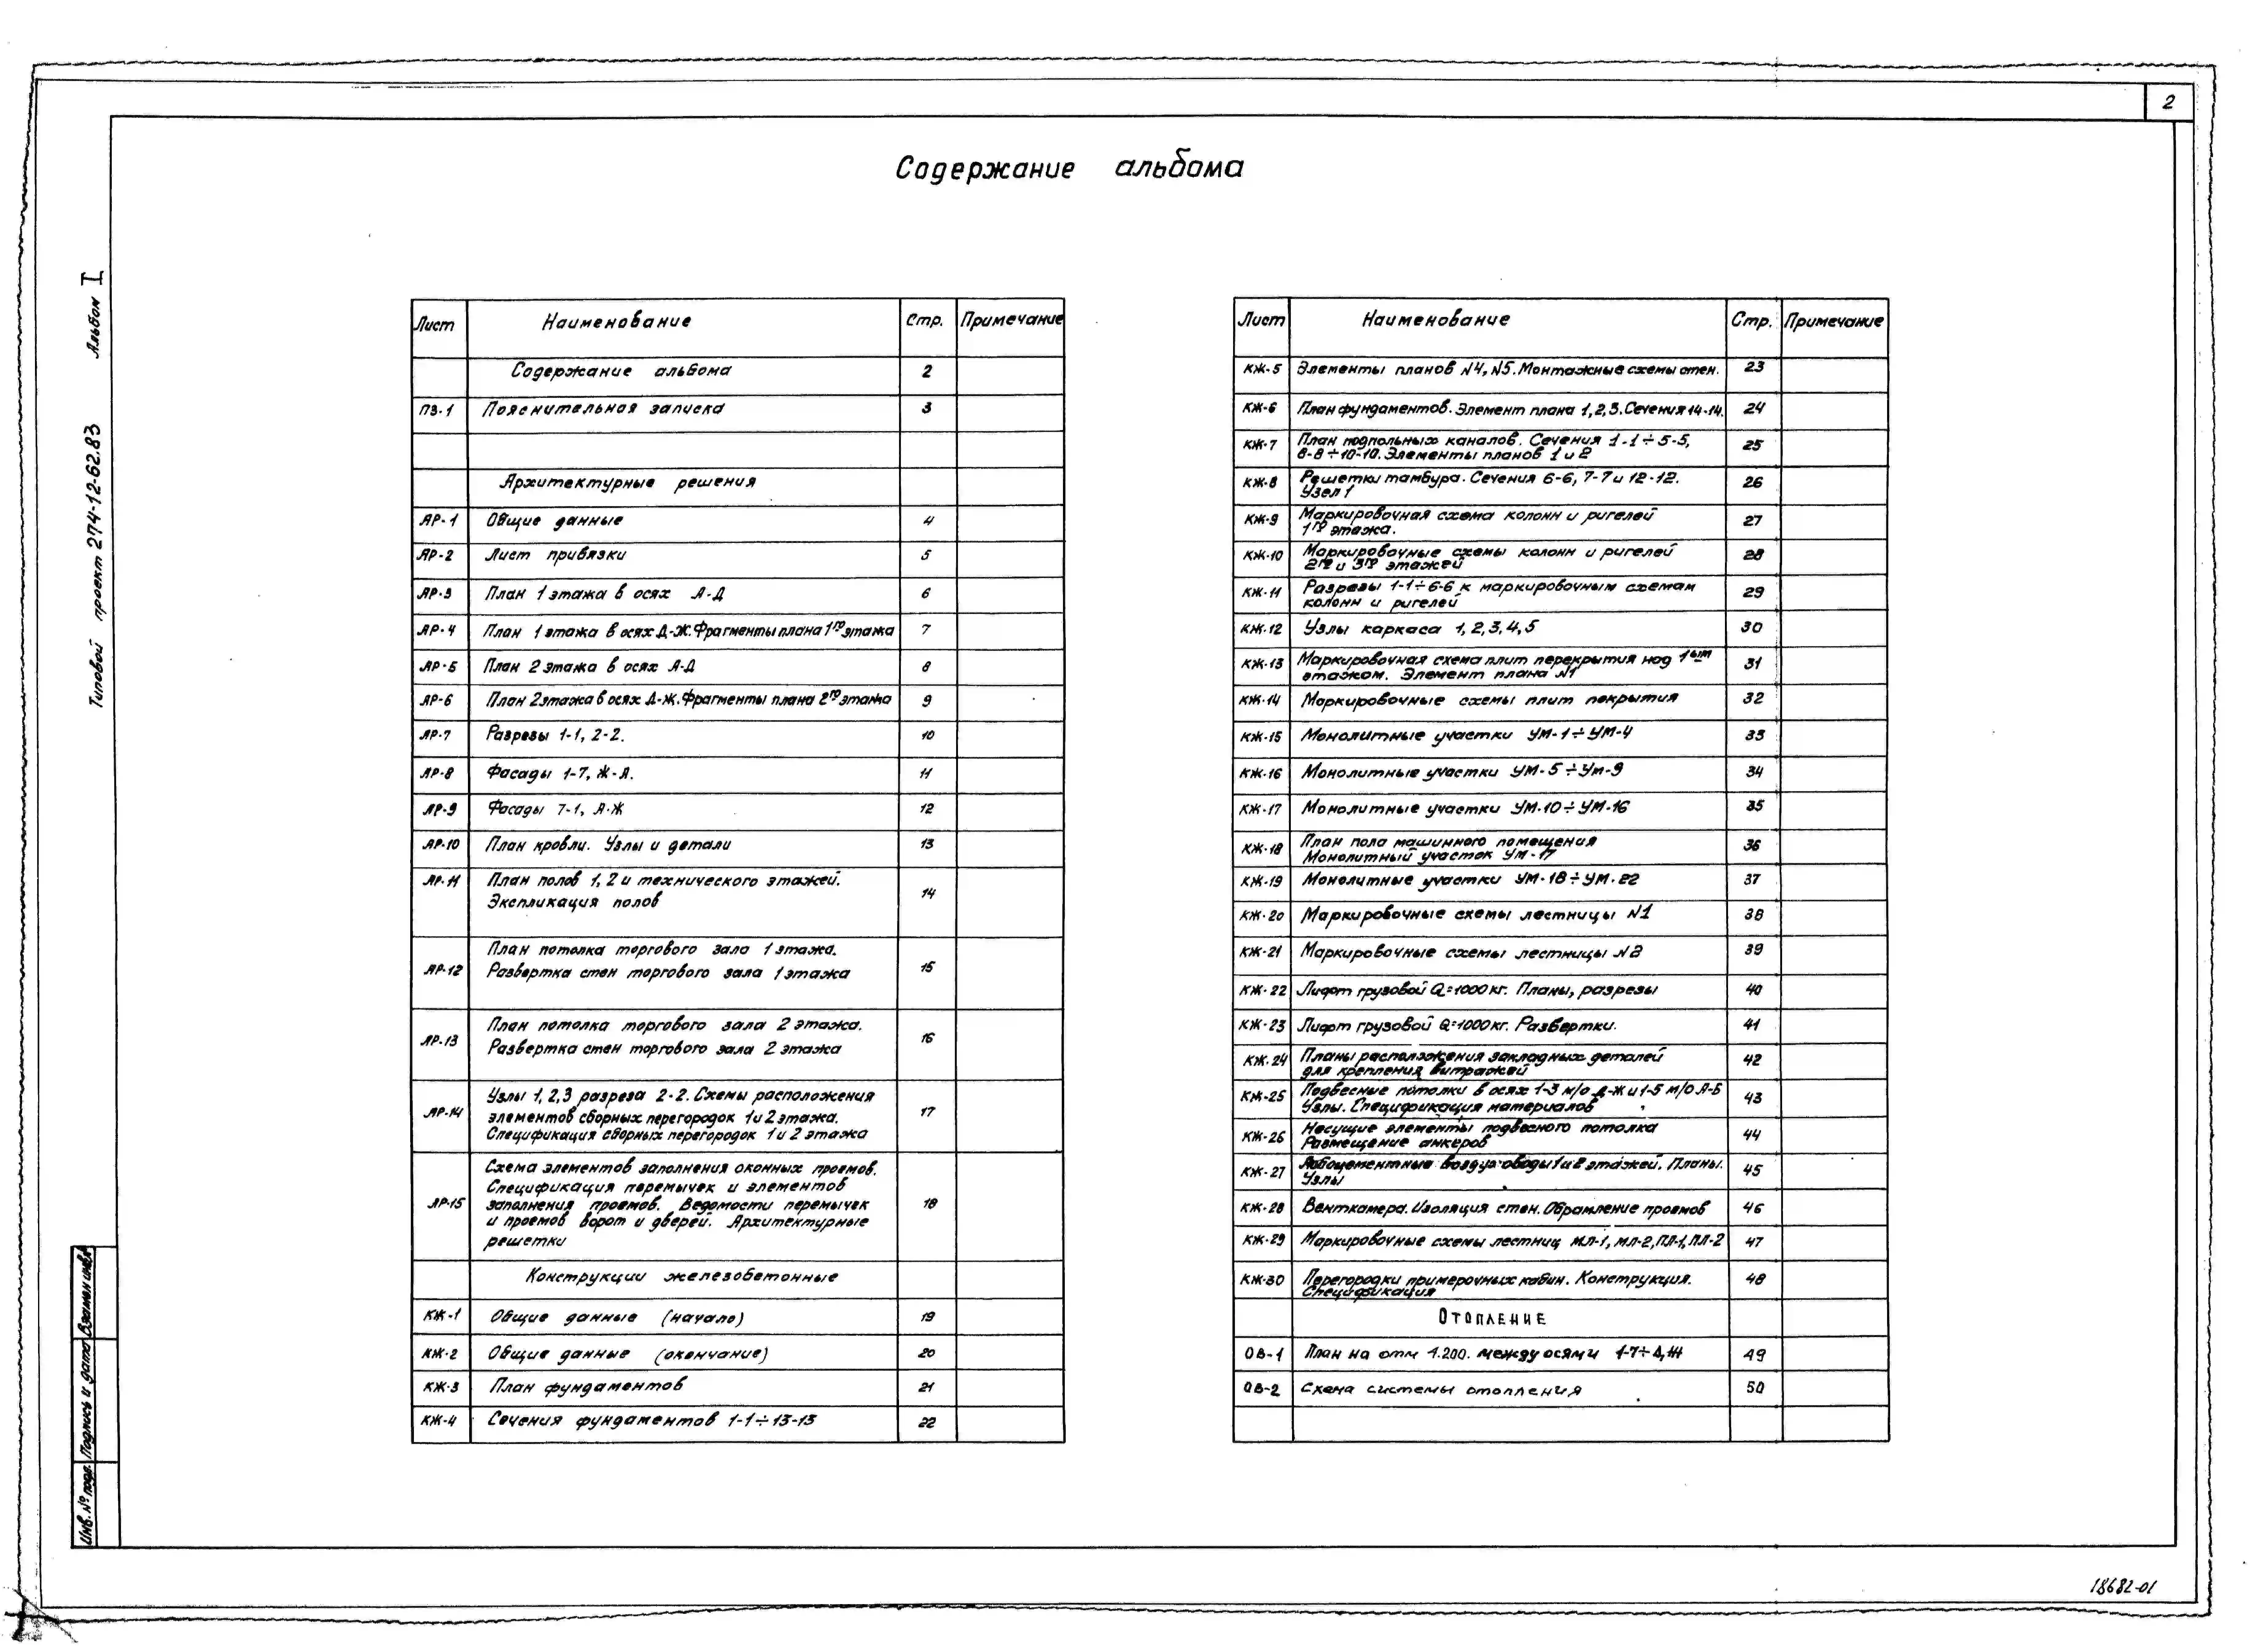 2
Содержание альбома
Типовой проект 274-12-62.83 Альбом I
Лист Наименование Стр. Примечание
Содержание альбома 2
ПЗ-1 Пояснительная записка 3
Архитектурные решения
АР-1 Общие данные 4
АР-2 Лист привязки 5
АР-3 План 1 этажа в осях А-Д 6
АР-4 План 1 этажа в осях Д-Ж. Фрагменты плана 1го этажа 7
АР-5 План 2 этажа в осях А-Д 8
АР-6 План 2 этажа в осях Д-Ж. Фрагменты плана 2го этажа 9
АР-7 Разрезы 1-1, 2-2. 10
АР-8 Фасады 1-7, Ж-А. 11
АР-9 Фасады 7-1, А-Ж 12
АР-10 План кровли. Узлы и детали 13
АР-11 План полов 1, 2 и технического этажей.
Экспликация полов 14
АР-12 План потолка торгового зала 1 этажа.
Развертка стен торгового зала 1 этажа 15
АР-13 План потолка торгового зала 2 этажа.
Развертка стен торгового зала 2 этажа 16
АР-14 Узлы 1, 2, 3 разреза 2-2. Схемы расположения
элементов сборных перегородок 1 и 2 этажа. 17
Спецификация сборных перегородок 1 и 2 этажа
Схема элементов заполнения оконных проемов.
Спецификация перемычек и элементов
АР-15 заполнения проемов. Ведомости перемычек 18
и проемов ворот и дверей. Архитектурные
решетки
Конструкции железобетонные
КЖ-1 Общие данные (начало) 19
КЖ-2 Общие данные (окончание) 20
КЖ-3 План фундаментов 21
КЖ-4 Сечения фундаментов 1-1÷13-13 22
Лист Наименование Стр. Примечание
КЖ-5 Элементы планов N4, N5. Монтажные схемы стен. 23
КЖ-6 План фундаментов. Элемент плана 1, 2, 3. Сечения 14-14. 24
КЖ-7 План подпольных каналов. Сечения 1-1÷5-5, 25
8-8÷10-10. Элементы планов 1 и 2
КЖ-8 Решетки тамбура. Сечения 6-6, 7-7 и 12-12. 26
Узел 1
КЖ-9 Маркировочная схема колонн и ригелей 27
1го этажа.
КЖ-10 Маркировочные схемы колонн и ригелей 28
2го и 3го этажей
КЖ-11 Разрезы 1-1÷6-6 к маркировочным схемам 29
колонн и ригелей
КЖ-12 Узлы каркаса 1, 2, 3, 4, 5 30
КЖ-13 Маркировочная схема плит перекрытия над 1ым 31
этажом. Элемент плана N1
КЖ-14 Маркировочные схемы плит покрытия 32
КЖ-15 Монолитные участки УМ-1÷УМ-4 33
КЖ-16 Монолитные участки УМ-5÷Ум-9 34
КЖ-17 Монолитные участки УМ-10÷УМ-16 35
КЖ-18 План пола машинного помещения 36
Монолитный участок Ум-17
КЖ-19 Монолитные участки УМ-18÷УМ-22 37
КЖ-20 Маркировочные схемы лестницы N1 38
КЖ-21 Маркировочные схемы лестницы N2 39
КЖ-22 Лифт грузовой Q=1000кг. Планы, разрезы 40
КЖ-23 Лифт грузовой Q=1000кг. Развертки. 41
КЖ-24 Планы расположения закладных деталей 42
для крепления витражей
КЖ-25 Подвесные потолки в осях 1-3 м/о Д-Ж и 1-5 м/о А-Б 43
Узлы. Спецификация материалов
КЖ-26 Несущие элементы подвесного потолка 44
Размещение анкеров
КЖ-27 Асбоцементные воздуховоды 1 и 2 этажей. Планы. 45
Узлы
КЖ-28 Венткамера. Изоляция стен. Обрамление проемов 46
КЖ-29 Маркировочные схемы лестниц МЛ-1, МЛ-2, ПЛ-1, ПЛ-2 47
КЖ-30 Перегородки примерочных кабин. Конструкция. 48
Спецификация
Отопление
ОВ-1 План на отм 1.200. между осями 1-7÷А, Ж 49
ОВ-2 Схема системы отопления 50
Инв. № подл. Подпись и дата Взамен инв.№
18682-01